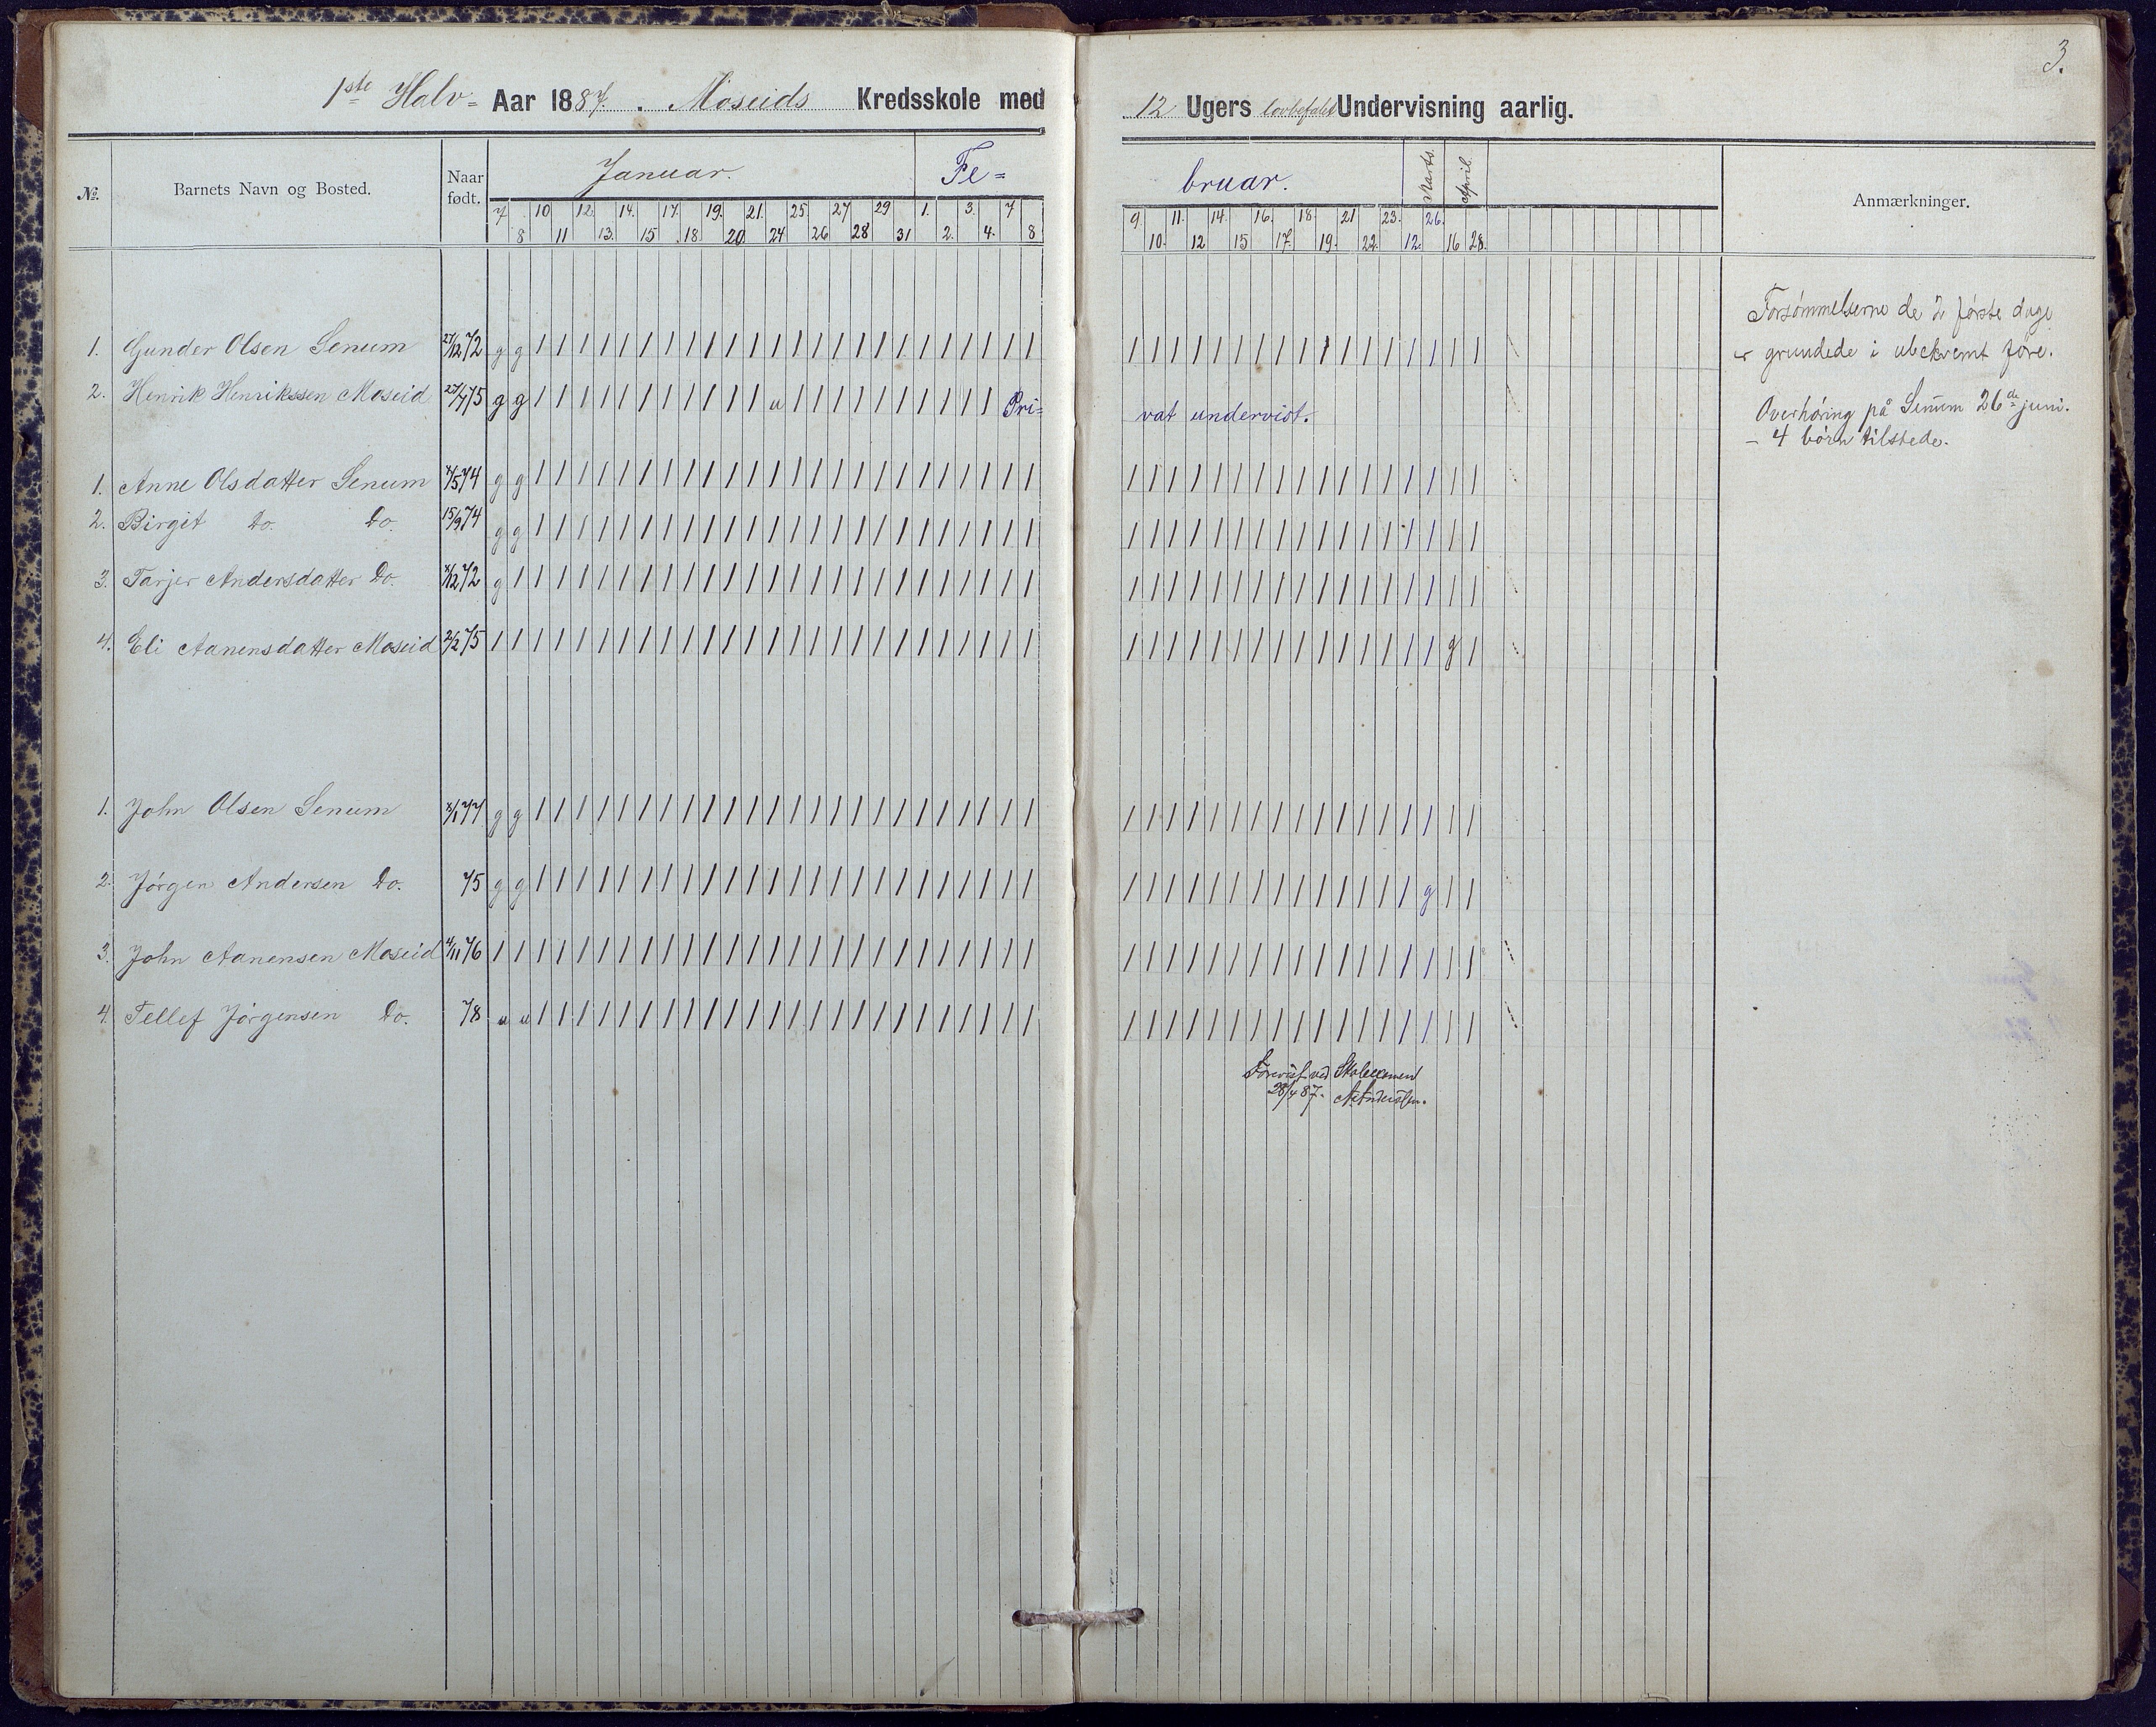 3.
1ste Halv- Aar 1887. Moseids Kredsskole med 12 Ugers lovbefalet Undervisning aarlig.
No. Barnets Navn og Bosted. Naar født. Januar. Fe= bruar. Marts. April. Anmærkninger.
7 10 12 14. 17. 19. 21. 25 27 29 1. 3. 7 9. 11. 14. 16. 18 21 23. 26.
8 11 13. 15 18 20 24 26 28 31 2. 4. 8 10. 12 15 17. 19. 22. 12. 16 28.
Forsømmelserne de 2 første dage
1. Gunder Olsen Senum 27/12 72 g g / / / / / / / / / / / / / / / / / / / / / / / / / / / / / / / / / / / / / / / / /
er grundede i ubekvemt føre.
2. Henrik Henrikssen Moseid 27/4 75 g g / / / / / / / / / / / u / / / / / / / / / / Pri= vat undervist.
Overhøring på Senum 26de juni.
– 4 børn tilstede.
1. Anne Olsdatter Senum 4/5 74 g g / / / / / / / / / / / / / / / / / / / / / / / / / / / / / / / / / / / / / / / / /
2. Birgit Do. Do. 15/9 74 g g / / / / / / / / / / / / / / / / / / / / / / / / / / / / / / / / / / / / / / / / /
3. Tarjer Andersdatter Do. /12 72 g / / / / / / / / / / / / / / / / / / / / / / / / / / / / / / / / / / / / / / / / / /
4. Eli Aanensdatter Moseid 2/2 75 / / / / / / / / / / / / / / / / / / / / / / / / / / / / / / / / / / / / / / / / / g /
1. John Olsen Senum /1 77 g g / / / / / / / / / / / / / / / / / / / / / / / / / / / / / / / / / / / / / / / / /
2. Jørgen Andersen Do. 75 g g / / / / / / / / / / / / / / / / / / / / / / / / / / / / / / / / / / / / / / g / /
3. John Aanensen Moseid 4/11 76 / / / / / / / / / / / / / / / / / / / / / / / / / / / / / / / / / / / / / / / / / / /
4. Tellef Jørgensen Do. 78 u u / / / / / / / / / / / / / / / / / / / / / / / / / / / / / / / / / / / / / / / / /
Forevist ved Skoleexamen
28/4 87.